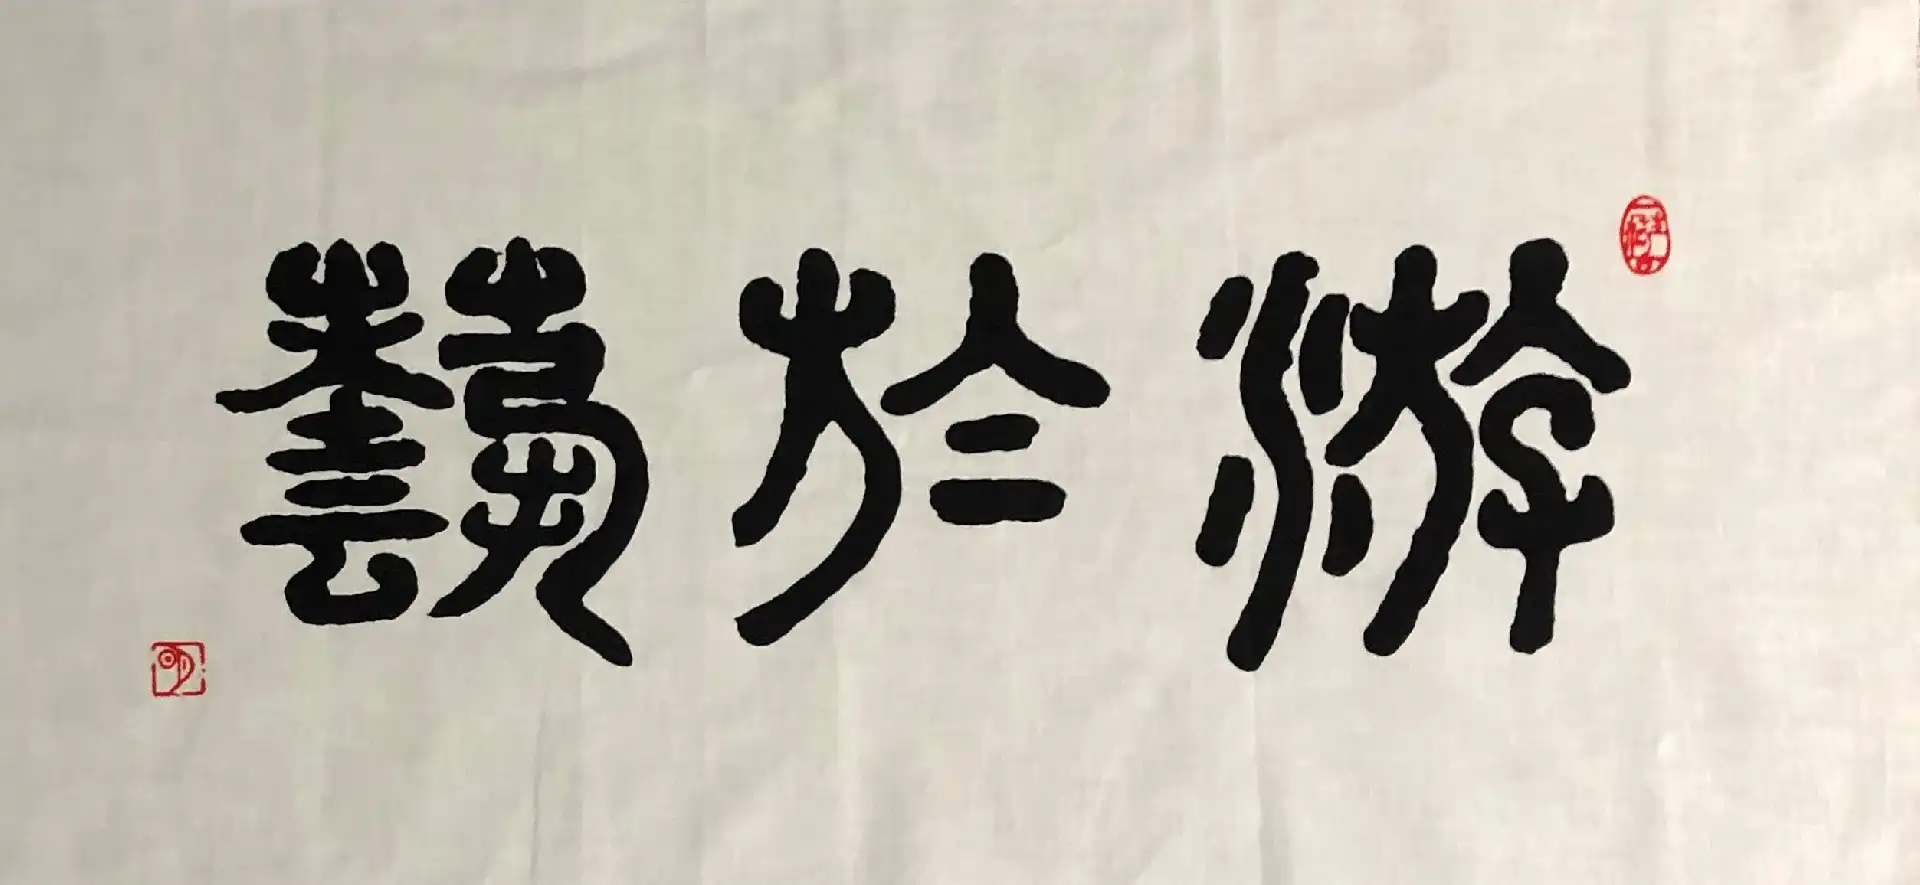 游於藝